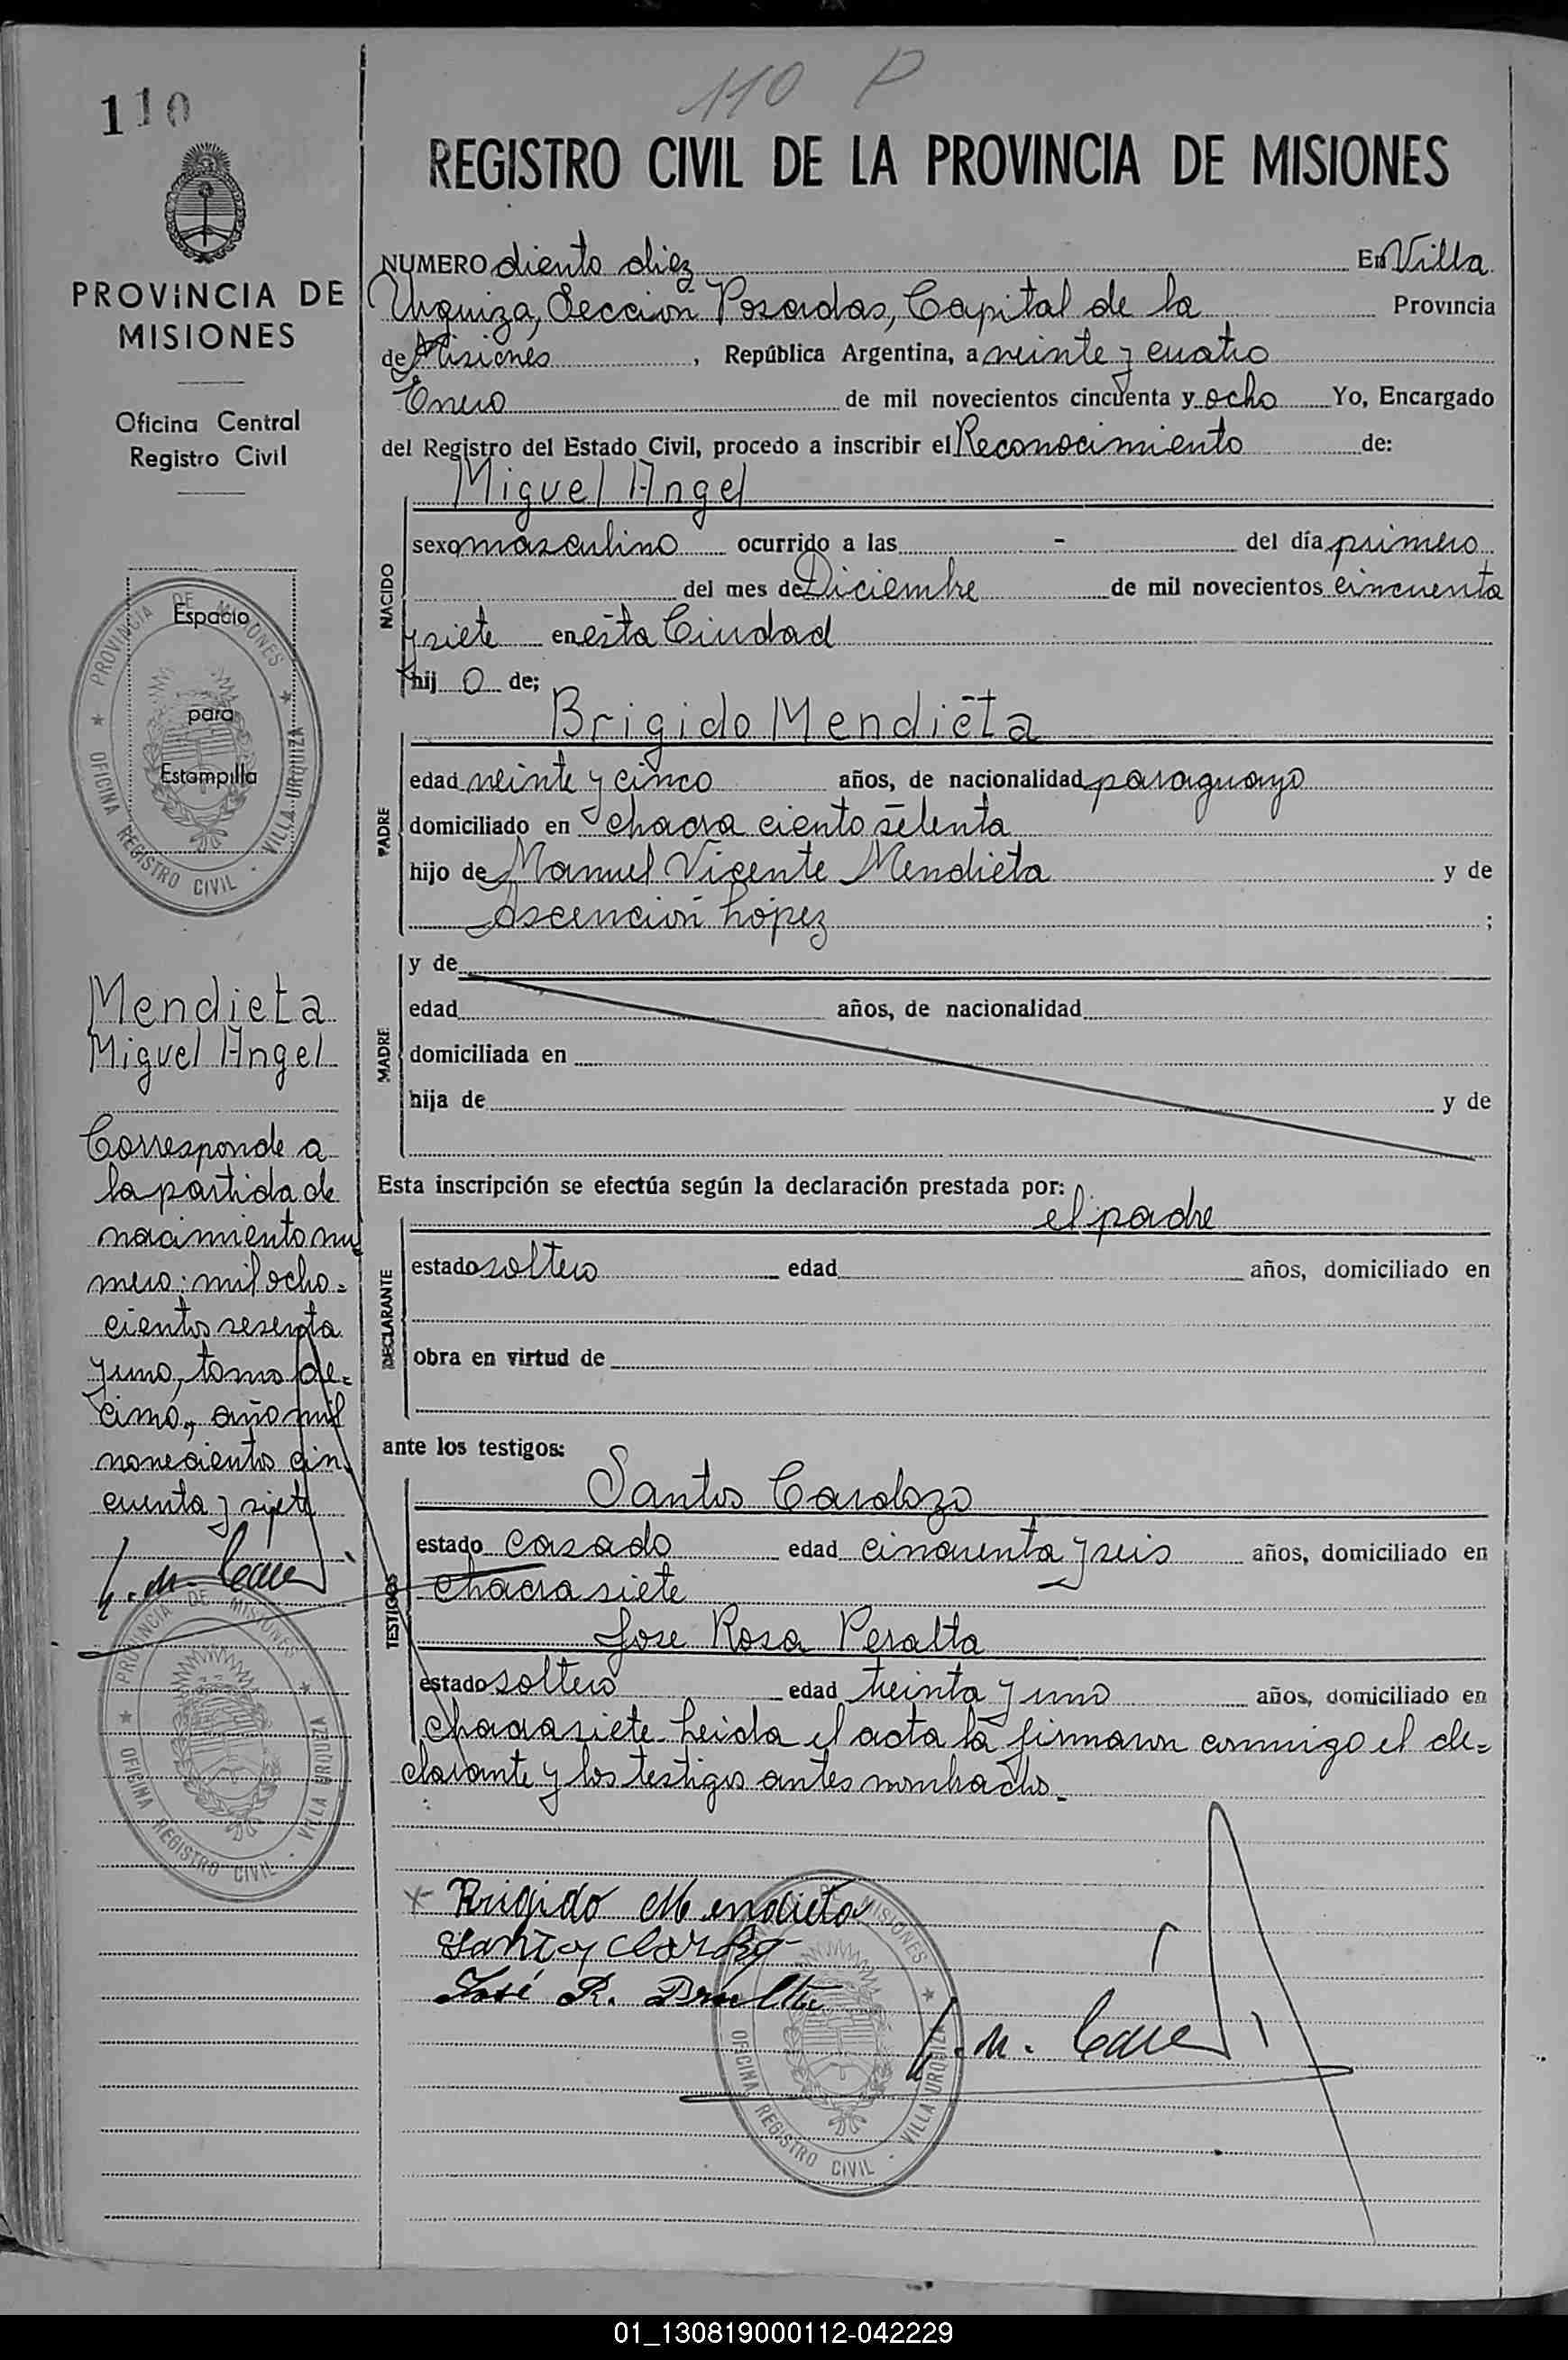 110 P
110
REGISTRO CIVIL DE LA PROVINCIA DE MISIONES
PROVINCIA DE
MISIONES
Oficina Central
Registro Civil
Espacio
para
Estampilla
PROVINCIA DE MISIONES
OFICINA REGISTRO CIVIL - VILLA URQUIZA
Mendieta
Miguel Angel
Corresponde a
la partida de
nacimiento nu
mero: mil ocho=
cientos sesenta
y uno, tomo de=
cimo, año mil
novecientos cin
cuenta y siete
PROVINCIA DE MISIONES
OFICINA REGISTRO CIVIL - VILLA URQUIZA
NUMERO ciento diez En Villa
Urquiza, Sección Posadas, Capital de la Provincia
de Misiones, República Argentina, a veinte y cuatro
Enero de mil novecientos cincuenta y ocho Yo, Encargado
del Registro del Estado Civil, procedo a inscribir el Reconocimiento de:
Miguel Angel
NACIDO
sexo masculino ocurrido a las - del día primero
del mes de Diciembre de mil novecientos cincuenta
y siete en esta Ciudad
hij o de;
Brigido Mendieta
PADRE
edad veinte y cinco años, de nacionalidad paraguayo
domiciliado en chacra ciento setenta
hijo de Manuel Vicente Mendieta y de
Ascención López ;
MADRE
y de
edad años, de nacionalidad
domiciliada en
hija de y de
Esta inscripción se efectúa según la declaración prestada por:
el padre
DECLARANTE
estado soltero edad años, domiciliado en
obra en virtud de
ante los testigos:
Santos Cardozo
TESTIGOS
estado casado edad cincuenta y seis años, domiciliado en
chacra siete
Jose Rosa Peralta
estado soltero edad treinta y uno años, domiciliado en
chacra siete. Leida el acta la firmaron conmigo el de=
clarante y los testigos antes nombrados.
Brigido Mendieta
José R. Peralta
MISIONES
OFICINA REGISTRO CIVIL - VILLA URQUIZA
01_130819000112-042229